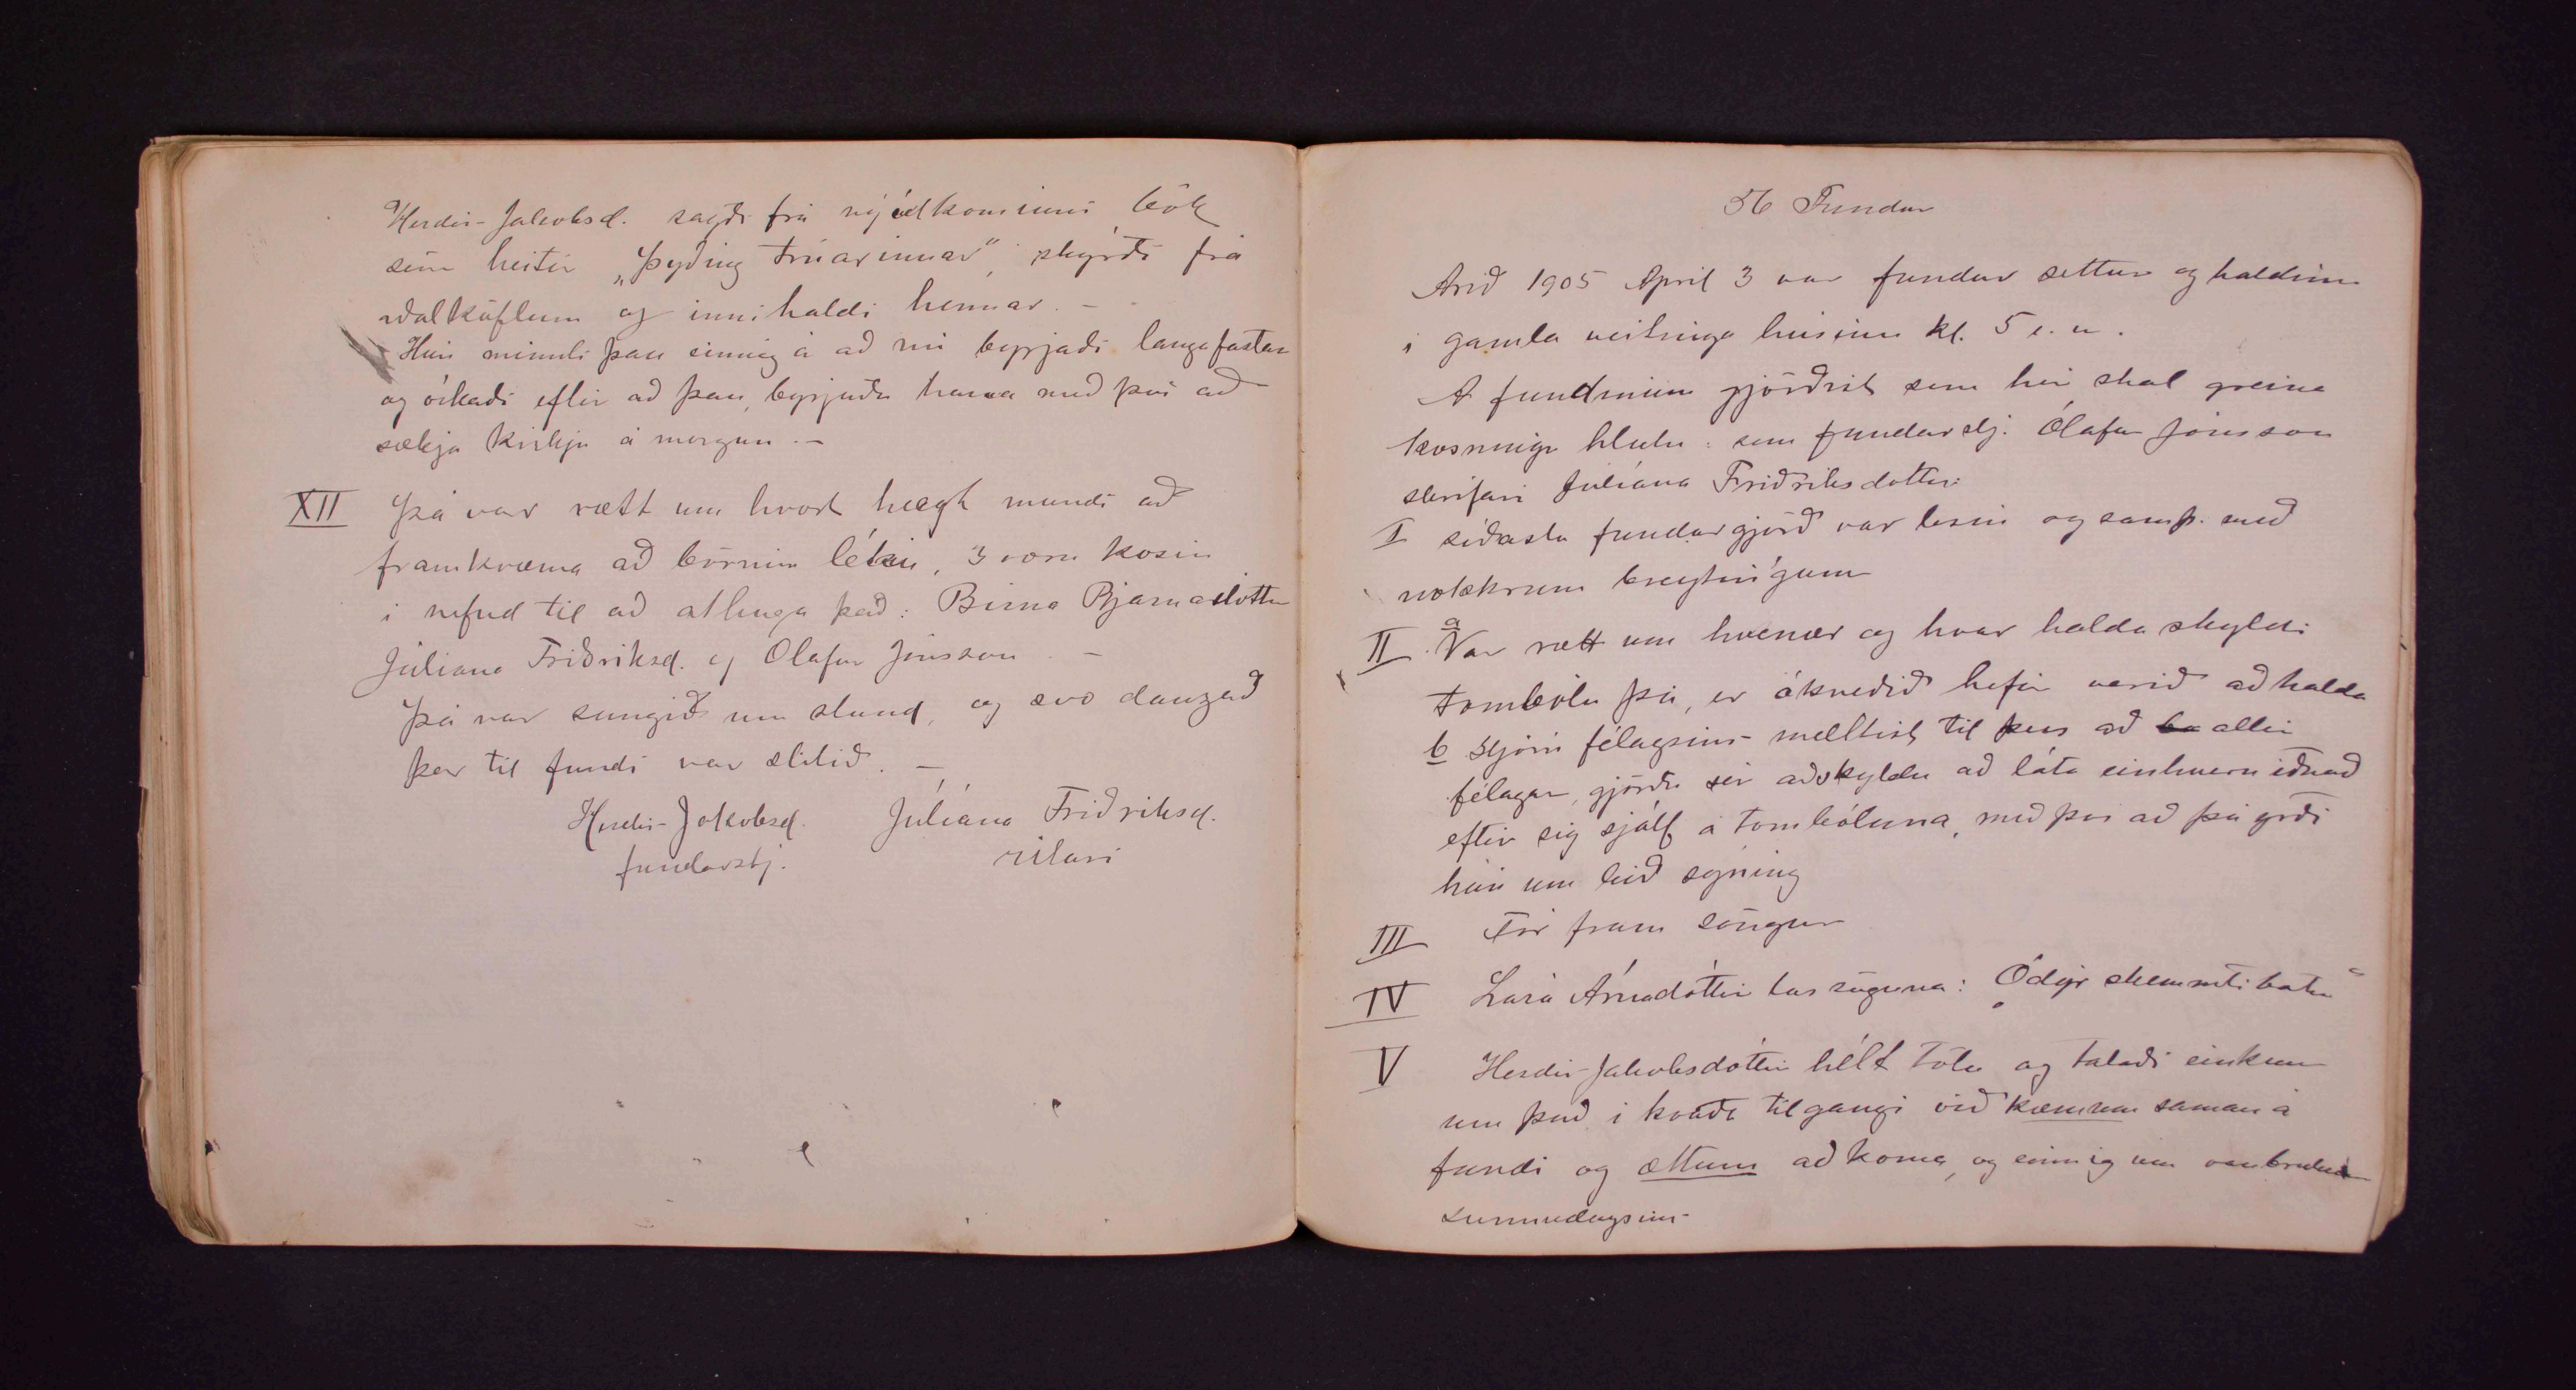 Herdís Jakobsd. sagði frá nýútkominni bók
sem heitir „Þyðing trúarinnar", skýrði frá
aðalköflum og innihaldi hennar. –
Hún minnti þau einnig á að nú byrjaði langafastan
og óskaði eftir að þau byrjuðu hana með því að
sækja kirkju á morgun. –
XII Þá var rætt um hvort hægt mundi að
framkvæma að börnin léki, 3 voru kosin
í nefnd til að athuga það: Birna Bjarnadóttir
Júliana Friðriksd. og Olafur Jónsson. –
Þá var sungið um stund, og svo danzað
þar til fundi var slitið. –
Herdís Jakobsd. Júlíana Friðriksd.
fundarstj. ritari
56 Fundur
Arið 1905 April 3 var fundur settur og haldinn
í gamla veitinga húsinu kl. 5 e. m.
Á fundinum gjörðist sem hér skal greina
kosningu hlutu: sem fundarstj. Ólafur Jónsson
skrifari Júlíana Friðriksdottir
I síðasta fundargjörð var lesin og samþ. með
nokkrum breytingum
II a Var rætt um hvenær og hvar halda skyldi
tombólu þá, er ákveðið hefir verið að halda
b Stjórn félagsins mæltist til þess að allir
félagar, gjörðu sér að skyldu að láta einhvern iðnað
eftir sig sjálf á tombóluna, með því að þá yrði
hún um leið sýning
III Fór fram söngur
IV Lára Árnadóttir las söguna: „Ódýr skemmtibátur"
V Herdís Jakobsdóttir hélt tölu og talaði einkum
um það í hvaða tilgangi við kæmum saman á
fundi og ættum að koma, og einnig um vanbrúkun
sunnudagsins